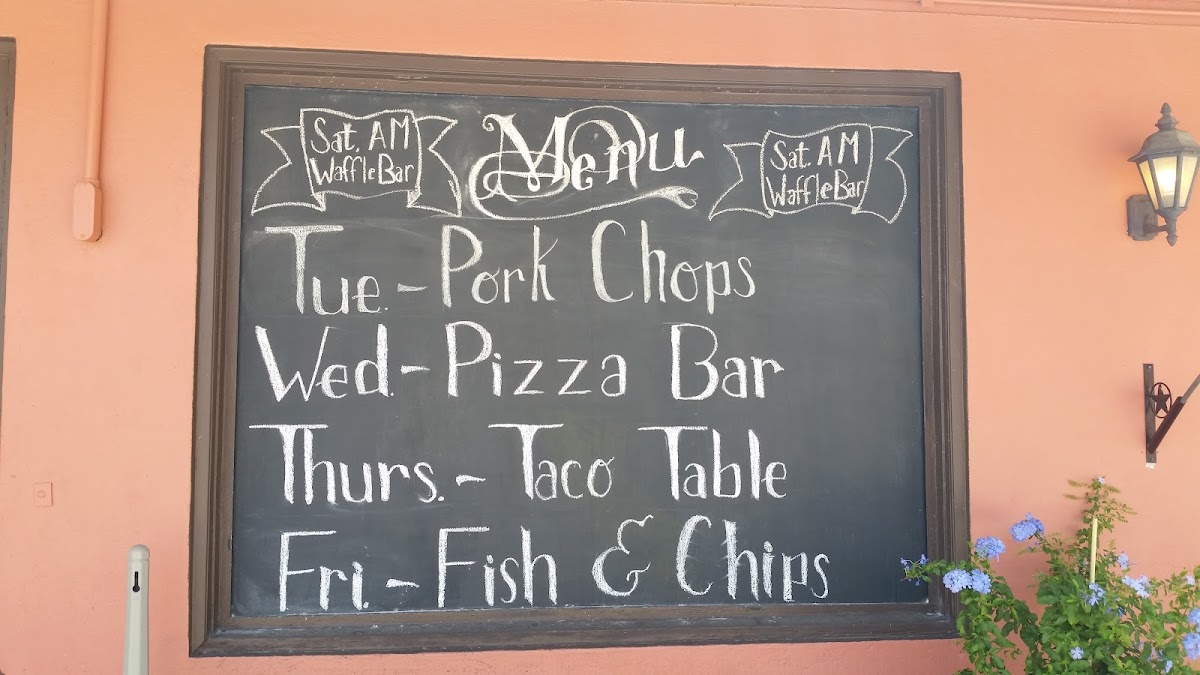 Sat. AM
Waffle Bar
Menu
Sat. AM
Waffle Bar
Tue. - Pork Chops
Wed. - Pizza Bar
Thurs. - Taco Table
Fri. - Fish & Chips